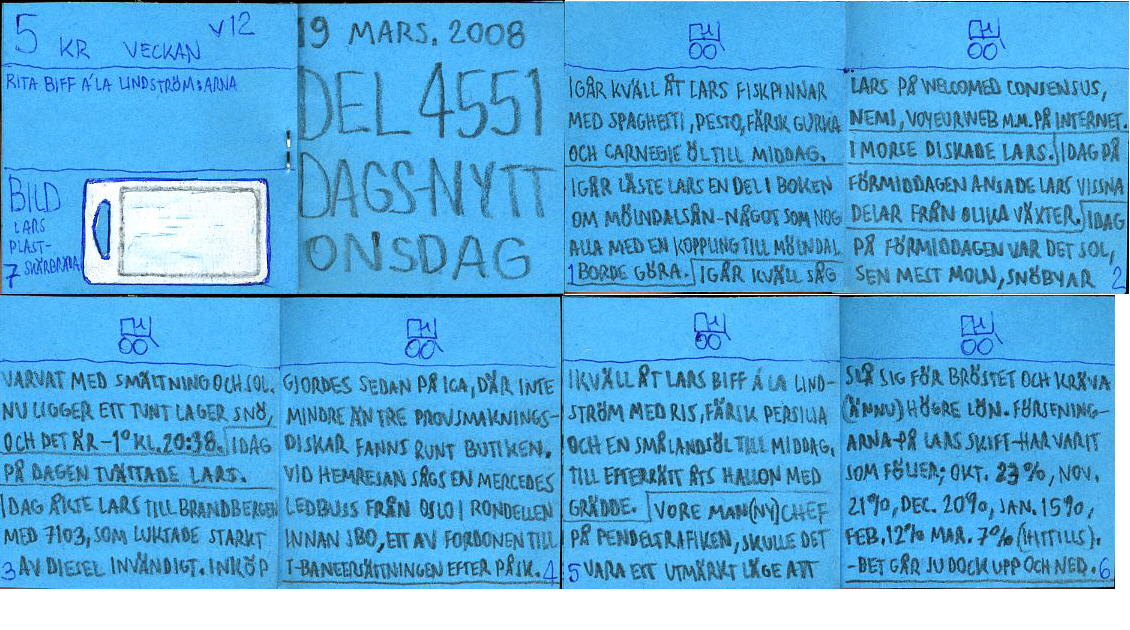 5 KR VECKAN V12
RITA BIFF Á LA LINDSTRÖM:ARNA
BILD
LARS
PLAST-
SKÄRBRÄDA
7
19 MARS. 2008
DEL 4551
DAGS-NYTT
ONSDAG
IGÅR KVÄLL ÅT LARS FISKPINNAR
MED SPAGHETTI, PESTO, FÄRSK GURKA
OCH CARNEGIE ÖL TILL MIDDAG.
IGÅR LÄSTE LARS EN DEL I BOKEN
OM MÖLNDALSÅN-NÅGOT SOM NOG
ALLA MED EN KOPPLING TILL MÖLNDAL
BORDE GÖRA. IGÅR KVÄLL SÅG
1
LARS PÅ WELCOMED CONSENSUS,
NEMI, VOYEURWEB M.M. PÅ INTERNET.
I MORSE DISKADE LARS. IDAG PÅ
FÖRMIDDAGEN ANSADE LARS VISSNA
DELAR FRÅN OLIKA VÄXTER. IDAG
PÅ FÖRMIDDAGEN VAR DET SOL,
SEN MEST MOLN, SNÖBYAR
2
VARVAT MED SMÄLTNING OCH SOL.
NU LIGGER ETT TUNT LAGER SNÖ,
OCH DET ÄR -1° KL. 20:38. IDAG
PÅ DAGEN TVÄTTADE LARS.
IDAG ÅKTE LARS TILL BRANDBERGEN
MED 7103, SOM LUKTADE STARKT
AV DIESEL INVÄNDIGT. INKÖP
3
GJORDES SEDAN PÅ ICA, DÄR INTE
MINDRE ÄN TRE PROVSMAKNINGS-
DISKAR FANNS RUNT BUTIKEN.
VID HEMRESAN SÅGS EN MERCEDES
LEDBUSS FRÅN OSLO I RONDELLEN
INNAN SBO, ETT AV FORDONEN TILL
T-BANEERSÄTTNINGEN EFTER PÅSK.
4
IKVÄLL ÅT LARS BIFF Á LA LIND-
STRÖM MED RIS, FÄRSK PERSILJA
OCH EN SMÅLANDSÖL TILL MIDDAG,
TILL EFTERRÄTT ÅTS HALLON MED
GRÄDDE. VORE MAN (NY) CHEF
PÅ PENDELTRAFIKEN, SKULLE DET
VARA ETT UTMÄRKT LÄGE ATT
5
SLÅ SIG FÖR BRÖSTET OCH KRÄVA
(ÄNNU) HÖGRE LÖN. FÖRSENING-
ARNA-PÅ LARS SKIFT-HAR VARIT
SOM FÖLJER; OKT. 23%, NOV.
21%, DEC. 20%, JAN. 15%,
FEB. 12% MAR. 7% (HITTILLS).
-DET GÅR JU DOCK UPP OCH NED.
6